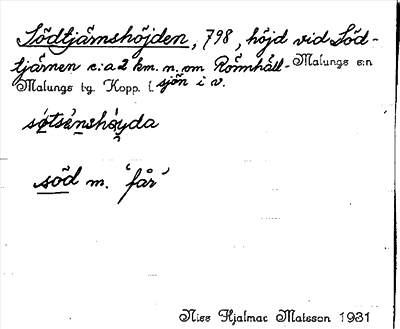 Södtjärnshöjden, 798, höjd vid Söd-
tjärnen c:a 2 km. n. om Rörmhåll- Malungs s:n
Malungs tg. Kopp. l. sjön i v.
søtsǽnshøyda
söd m. 'får'
Niss Hjalmar Matsson 1931